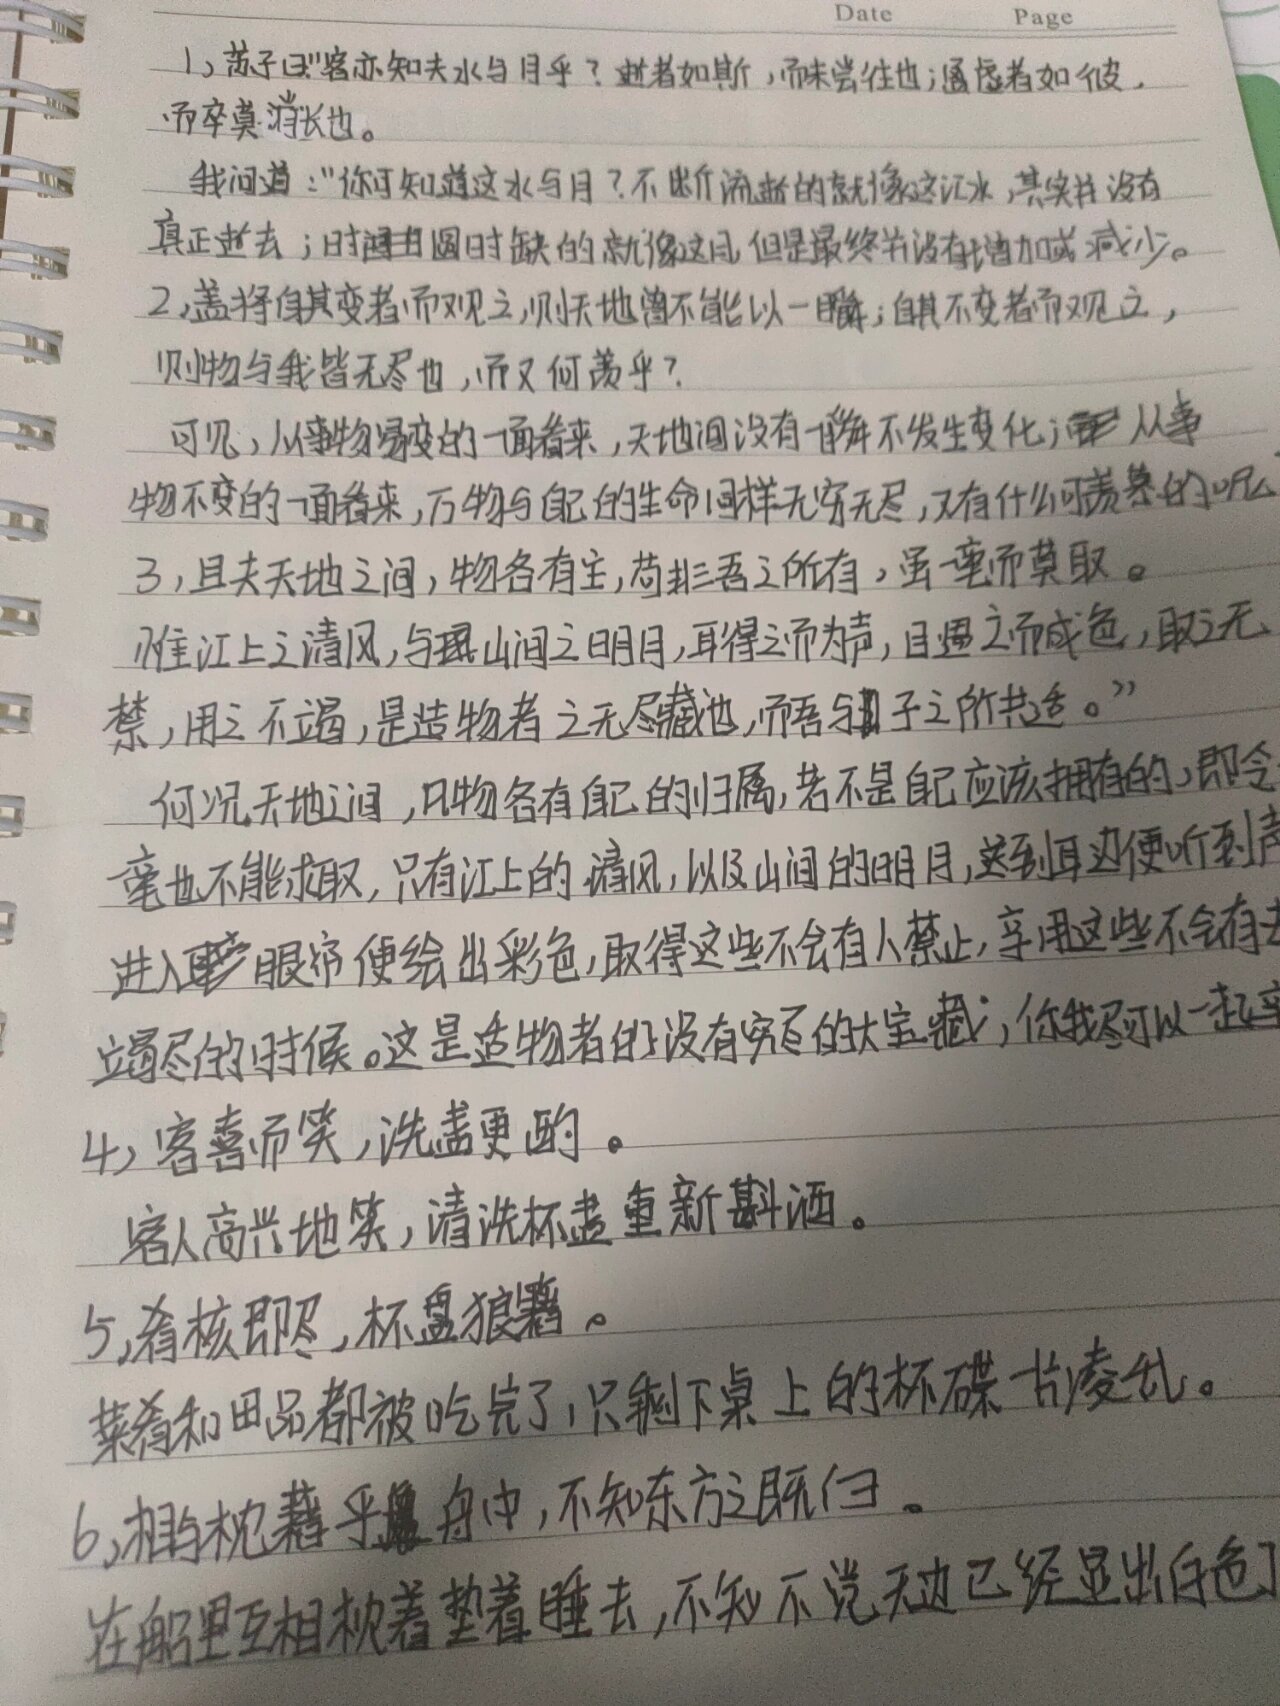 Date Page
1,苏子曰"客亦知夫水与月乎?逝者如斯,而未尝往也;盈虚者如彼,
而卒莫消长也。
我问道:"你可知道这水与月?不断流逝的就像这江水,其实并没有
真正逝去;时圆时缺的就像这月,但是最终并没有增加或减少。
2,盖将自其变者而观之,则天地曾不能以一瞬;自其不变者而观之,
则物与我皆无尽也,而又何羡乎?
可见,从事物易变的一面看来,天地间没有一瞬不发生变化;从事
物不变的一面看来,万物与自己的生命同样无穷无尽,又有什么可羡慕的呢
3,且夫天地之间,物各有主,苟非吾之所有,虽一毫而莫取。
惟江上之清风,与山间之明月,耳得之而为声,目遇之而成色,取之无
禁,用之不竭,是造物者之无尽藏也,而吾与子之所共适。"
何况天地之间,凡物各有自己的归属,若不是自己应该拥有的,即令
毫也不能求取,只有江上的清风,以及山间的明月,送到耳边便听到声
进入眼帘便绘出彩色,取得这些不会有人禁止,享用这些不会有
竭尽的时候。这是造物者的没有穷尽的大宝藏,你我尽可以一起享
4,客喜而笑,洗盏更酌。
客人高兴地笑,清洗杯盏重新斟酒。
5,肴核即尽,杯盘狼藉。
菜肴和果品都被吃完了,只剩下桌上的杯碟一片凌乱。
6,相与枕藉乎舟中,不知东方之既白。
在船里互相枕着垫着睡去,不知不觉天边已经显出白色了